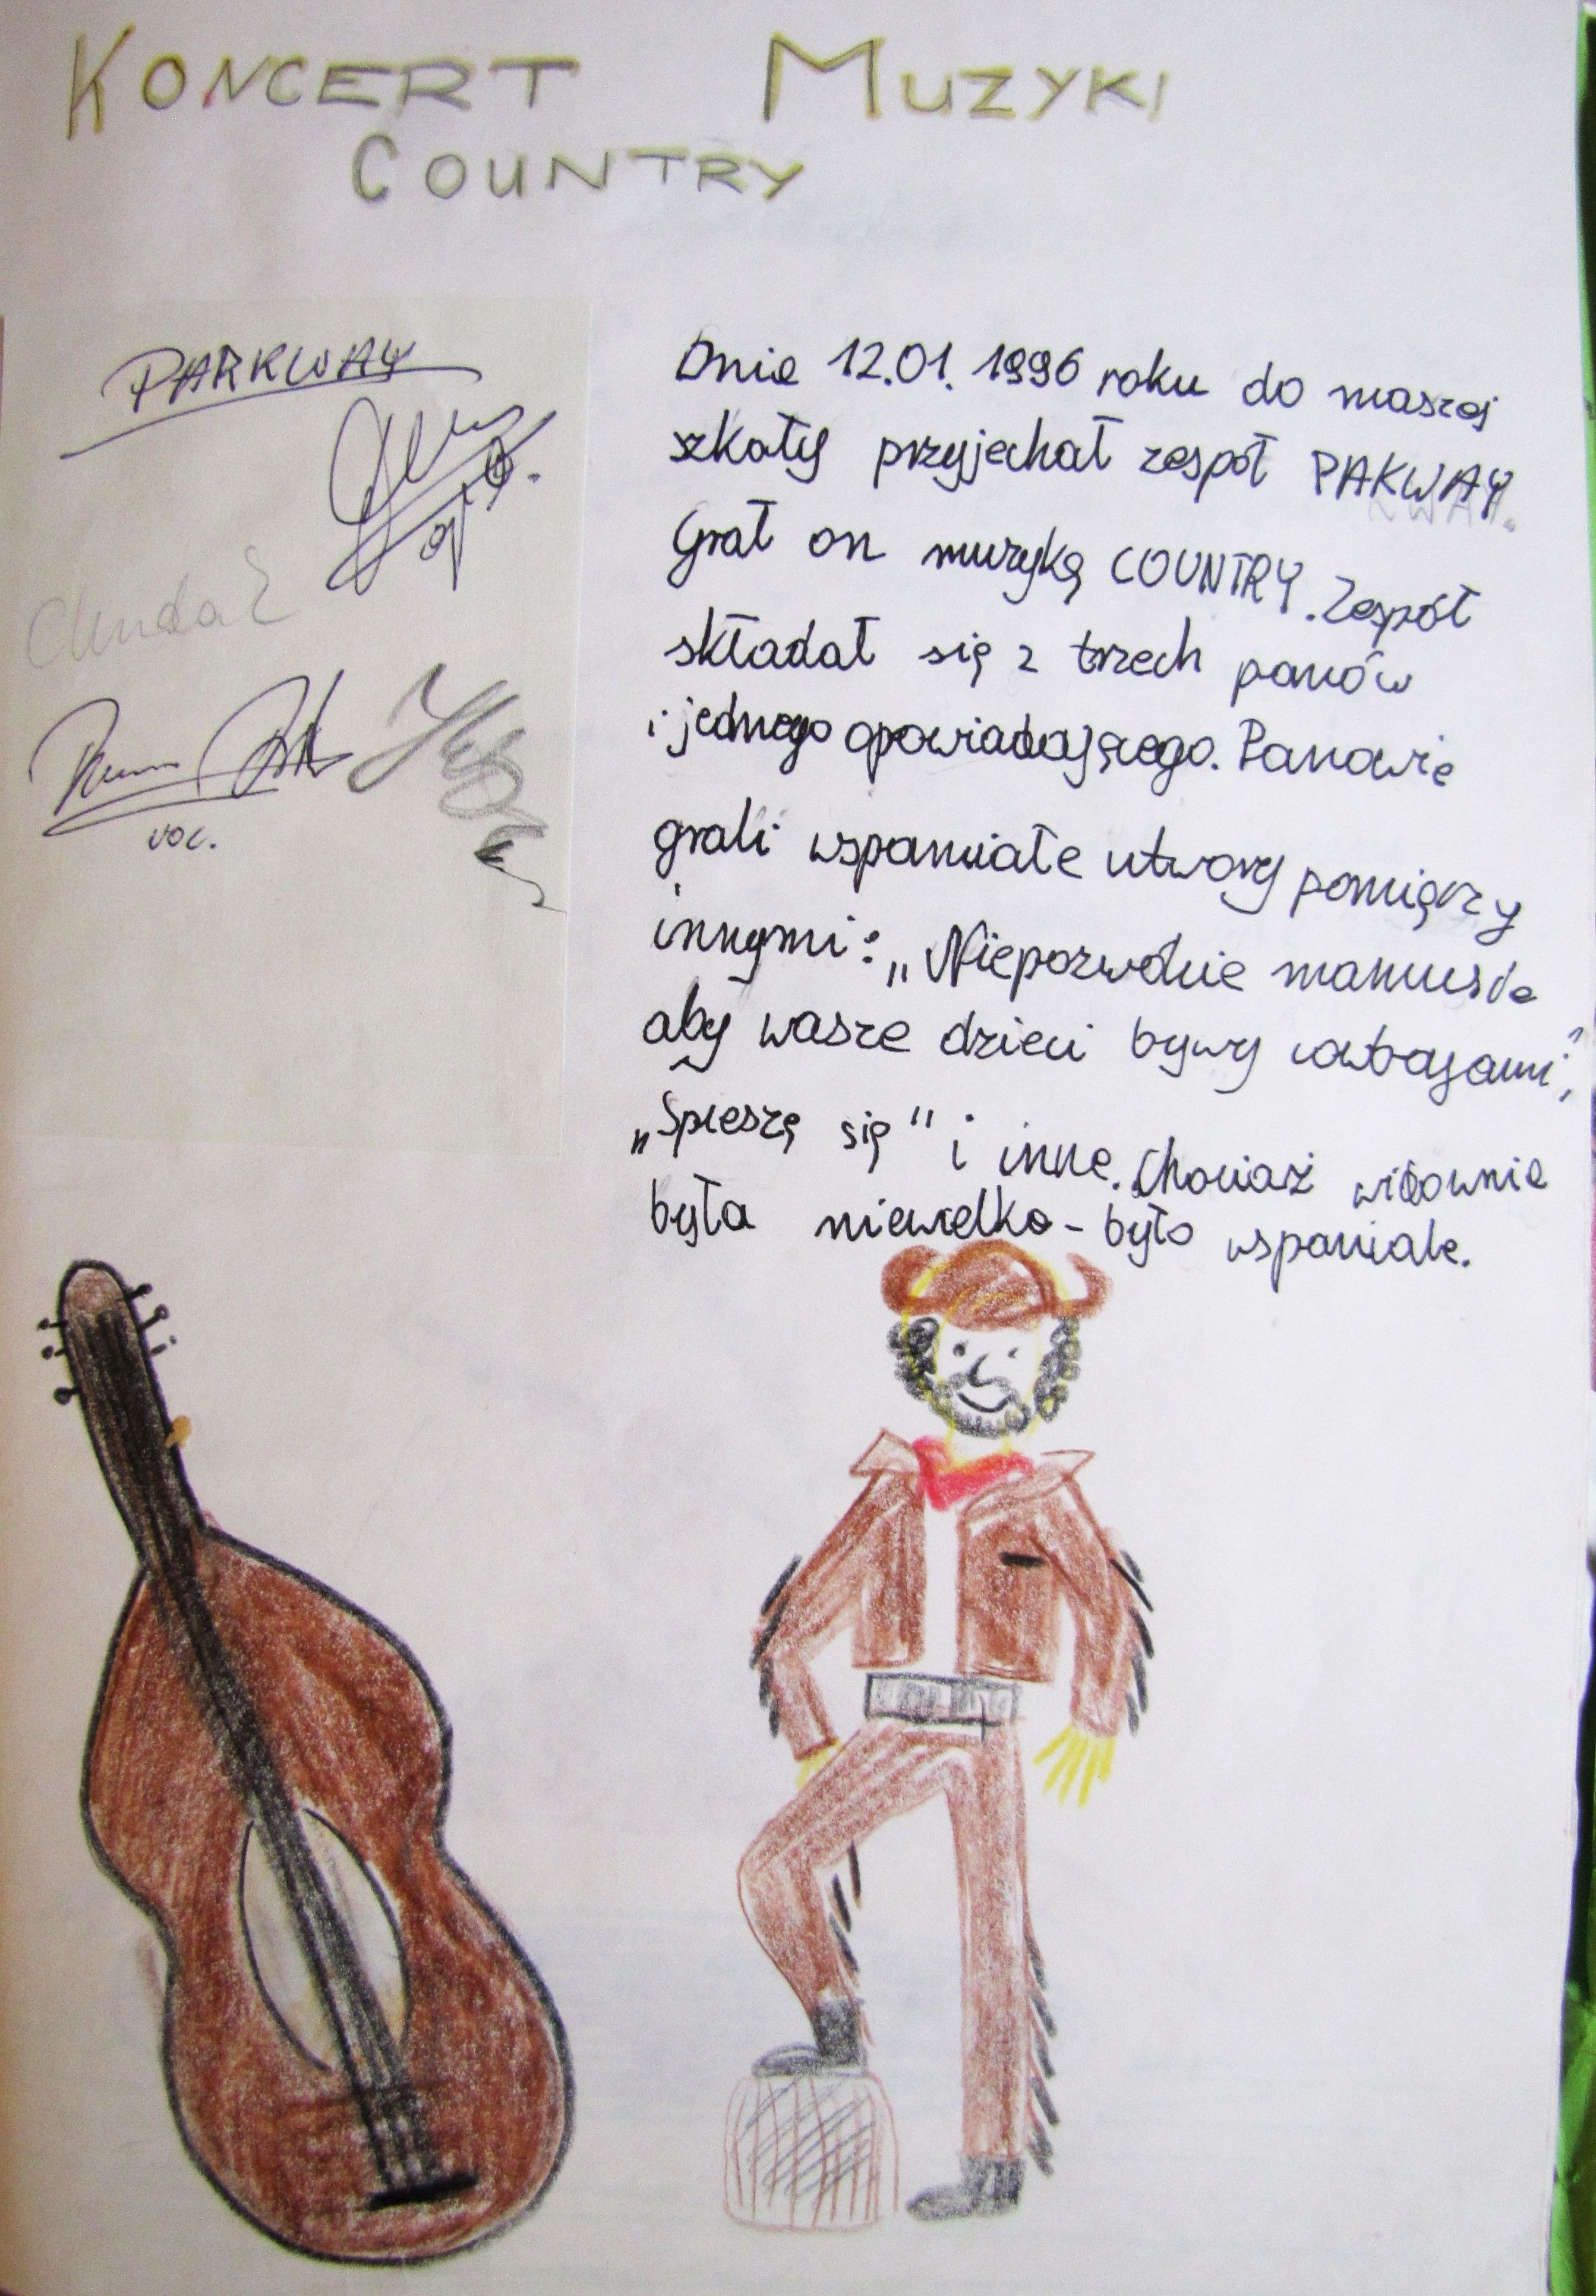 KONCERT MUZYKI
COUNTRY
PARKWAY
Chudał
voc.
Dnia 12.01.1996 roku do naszej
szkoły przyjechał zespół PAKWAY.
Grał on muzykę COUNTRY. Zespół
składał się z trzech panów
i jednego opowiadającego. Panowie
grali wspaniałe utwory pomięrzy
innymi: „Niepozwólcie mamusie
aby wasze dzieci bywy cowbojami",
„Spieszę się" i inne. Chociaż widownia
była niewielka - było wspaniale.